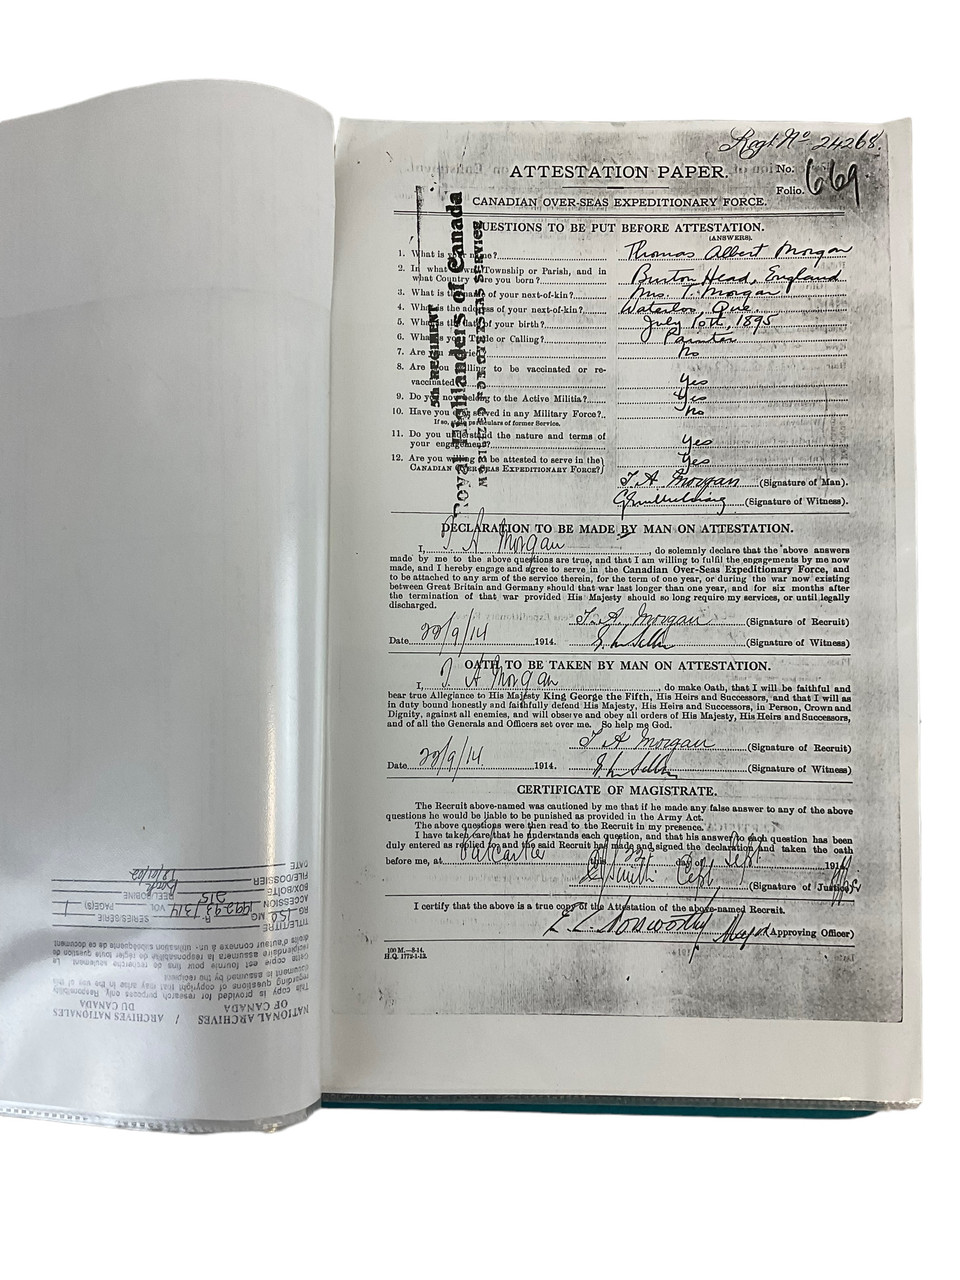 Regt Nº 24268.
ATTESTATION PAPER.
No.
Folio. 669
CANADIAN OVER-SEAS EXPEDITIONARY FORCE.
5th REGIMENT
Royal Highlanders of Canada
QUESTIONS TO BE PUT BEFORE ATTESTATION.
(ANSWERS).
1. What is your name? Thomas Albert Morgan
2. In what Town, Township or Parish, and in
what Country were you born? Burton Head, England
3. What is the name of your next-of-kin? Mrs. T. Morgan
4. What is the address of your next-of-kin? Waterloo, Que.
5. What is the date of your birth? July 15th, 1895
6. What is your Trade or Calling? Painter
7. Are you married? No
8. Are you willing to be vaccinated or re-
vaccinated? Yes
9. Do you now belong to the Active Militia? Yes
10. Have you ever served in any Military Force? No
If so, particulars of former Service.
11. Do you understand the nature and terms of
your engagement? Yes
12. Are you willing to be attested to serve in the
CANADIAN OVER-SEAS EXPEDITIONARY FORCE? Yes
T. A. Morgan (Signature of Man).
(Signature of Witness).
DECLARATION TO BE MADE BY MAN ON ATTESTATION.
I, T A Morgan, do solemnly declare that the above answers
made by me to the above questions are true, and that I am willing to fulfil the engagements by me now
made, and I hereby engage and agree to serve in the Canadian Over-Seas Expeditionary Force, and
to be attached to any arm of the service therein, for the term of one year, or during the war now existing
between Great Britain and Germany should that war last longer than one year, and for six months after
the termination of that war provided His Majesty should so long require my services, or until legally
discharged.
T. A. Morgan (Signature of Recruit)
Date 22/9/14 1914. (Signature of Witness)
OATH TO BE TAKEN BY MAN ON ATTESTATION.
I, T A Morgan, do make Oath, that I will be faithful and
bear true Allegiance to His Majesty King George the Fifth, His Heirs and Successors, and that I will as
in duty bound honestly and faithfully defend His Majesty, His Heirs and Successors, in Person, Crown and
Dignity, against all enemies, and will observe and obey all orders of His Majesty, His Heirs and Successors,
and of all the Generals and Officers set over me. So help me God.
T A Morgan (Signature of Recruit)
Date 22/9/14 1914. (Signature of Witness)
CERTIFICATE OF MAGISTRATE.
The Recruit above-named was cautioned by me that if he made any false answer to any of the above
questions he would be liable to be punished as provided in the Army Act.
The above questions were then read to the Recruit in my presence.
I have taken care that he understands each question, and that his answer to each question has been
duly entered as replied to, and the said Recruit has made and signed the declaration and taken the oath
before me, at Valcartier this 22 day of Sept 1914
Smith Capt, (Signature of Justice)
I certify that the above is a true copy of the Attestation of the above-named Recruit.
Major (Approving Officer)
100 M.—8-14.
H.Q. 1772-1-13.
NATIONAL ARCHIVES / ARCHIVES NATIONALES
OF CANADA DU CANADA
This copy is provided for research purposes only. Responsibility
regarding questions of copyright that may arise in the use of this
document is assumed by the recipient.
Cette copie est fournie pour fins de recherche seulement. Le
récipiendaire assumera la responsabilité de régler toute question de
droits d'auteur connexe à un utilisation subséquente de ce document
TITLE/TITRE
RG 150 MG R SERIES/SERIE
ACCESSION 1992-93/314 VOL PAGE(S) 1
BOX/BOITE 215 REEL/BOBINE
FILE/DOSSIER
DATE 18/01/02